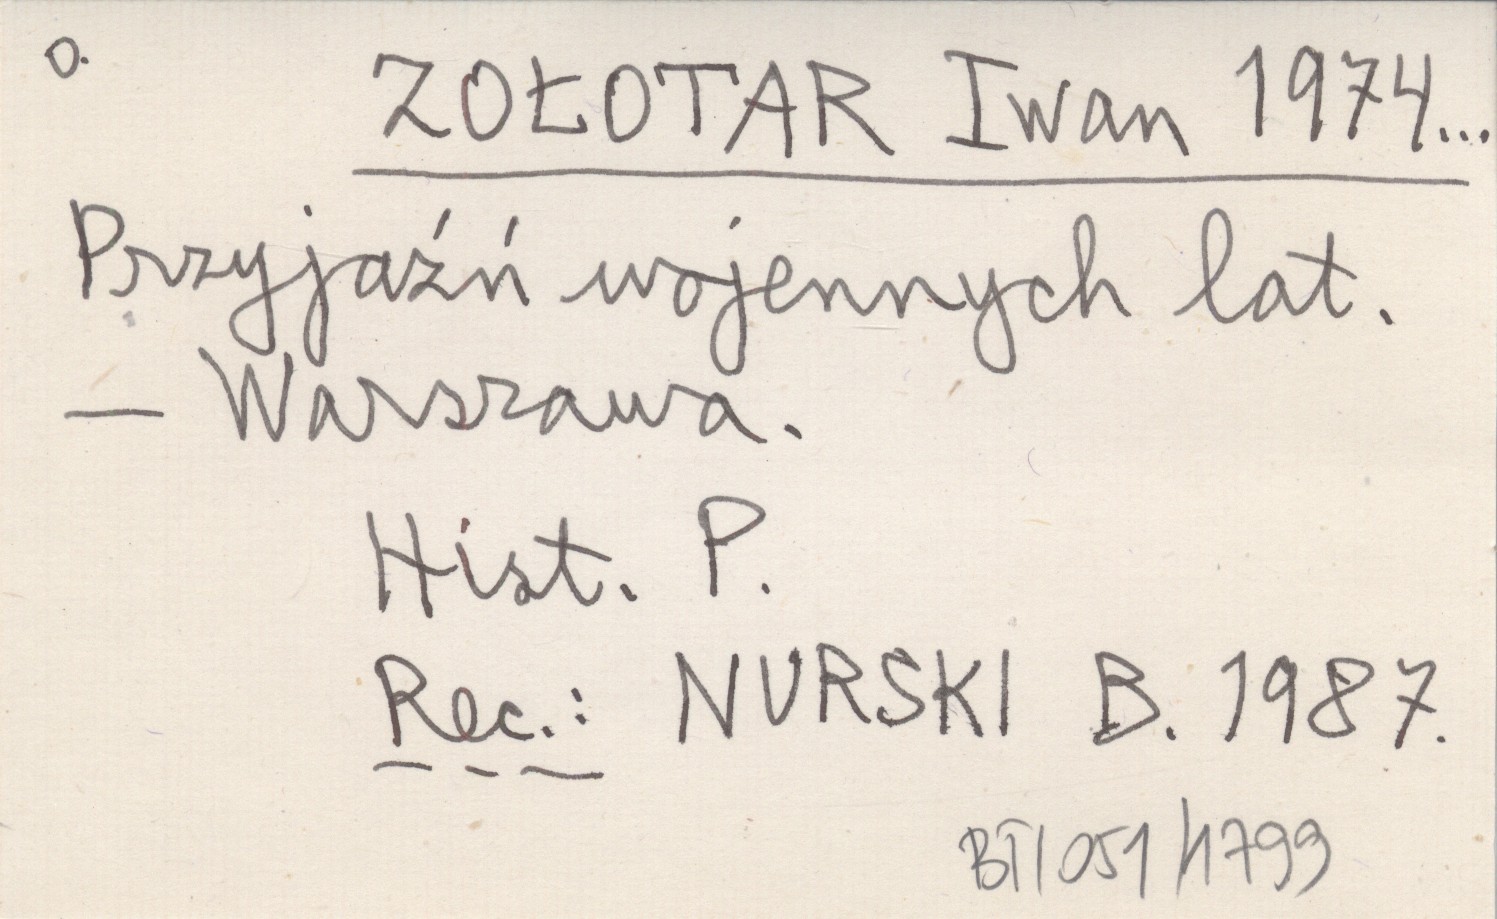 o. ZOŁOTAR Iwan 1974...
Przyjaźń wojennych lat.
— Warszawa.
Hist. P.
Rec.: NURSKI B. 1987.
BŁ/051/1799